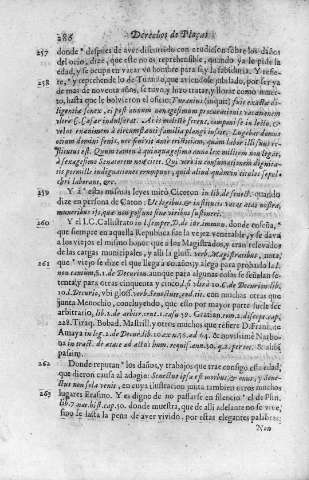 286 Derechos de Plaças
257 donde despues de aver discurrido con erudicion sobre los daños
del ocio, dize, que este no es reprehensible, quando ya lo pide la
edad, y se ocupa en vacar vn hombre para si, y la sabiduria. Y refie-
258 re, y reprehende lo de Turanio, que aviendole jubilado, por ser ya
de mas de noventa años, se tuvo, y hizo tratar, y llorar como muer-
to, hasta que le bolvieron el oficio; Turanius (inquit) fuit exactæ di-
ligentiæ senex, & post annum nonagesimum procurationis vacationem
vltro C. Cæsar indulserat. At is mollitè ferens, componi se in lecto, &
velut exanimem à circumstanti familia plangi iussit. Lugebat domus
otium domini senis, nec finivit ante tristitiam, quam labor illi suus res-
titutus est. Quum tamen à quinquagesimo anno lex militem non legat,
à sexagesimo Senatorem non citet. Qui verò in consummationem dignita-
tis per mille indignationes erumpunt, quid aliud quàm in titulos sepul-
chri laborant, &c.
259 Y à estas mismas leyes mirò Ciceron in lib. de senect. quando
dize en persona de Caton: Vt legibus & institutis vacat ætas nostra,
muneribus iis, quæ non possunt sine viribus sustineri.
260 Y el I.C. Callistrato in l. semper, D. de iur. immun. donde enseña,
que siempre en aquella Republica fue la vejez venerable, y se dava
à los viejos el mismo honor que à los Magistrados, y eran relevados
de las cargas municipales, y alli la gloss. verb. Magistratibus, junta
261 que viejo se dize el que llega à conàdioy alego para probalo l.
non tantùm, §. 1. de Decurion. aunque para algunas cosas se señalan se-
tenta, y para otras cinquenta y cinco
10. l. Decurio, vbi gloss. verb. con muchas otras que
junta Menochio, concluyendo, que esto por mayor parte suele ser
arbitrario, lib. 2. de arbitr. cent. 1. casu 39. Gratian. tom. 2. discept. cap.
228. Tiraq. Bobad. Mastrill. y otros muchos que refiere D. Franc. de
Amaya
na in tract. de ætate ad actus hum. requis. ann. 30. q. 2. per tot. & alibi
passim.
262 Donde reputan los daños, y trabajos que trae consigo esta edad,
que dieron causa al adagio: Senectus ipsa est morbus, & onus, & senec-
tus non sola venit, en cuya ilustracion junta tambien otros muchos
263 lugares Erasmo. Y es digno de no passarse en silencio el de Plin.
lib. 7. nat. hist. cap. 50. donde muestra, que de alli adelante no se vive,
sino se lasta la pena de aver vivido, por estas elegantes palabras:
Non